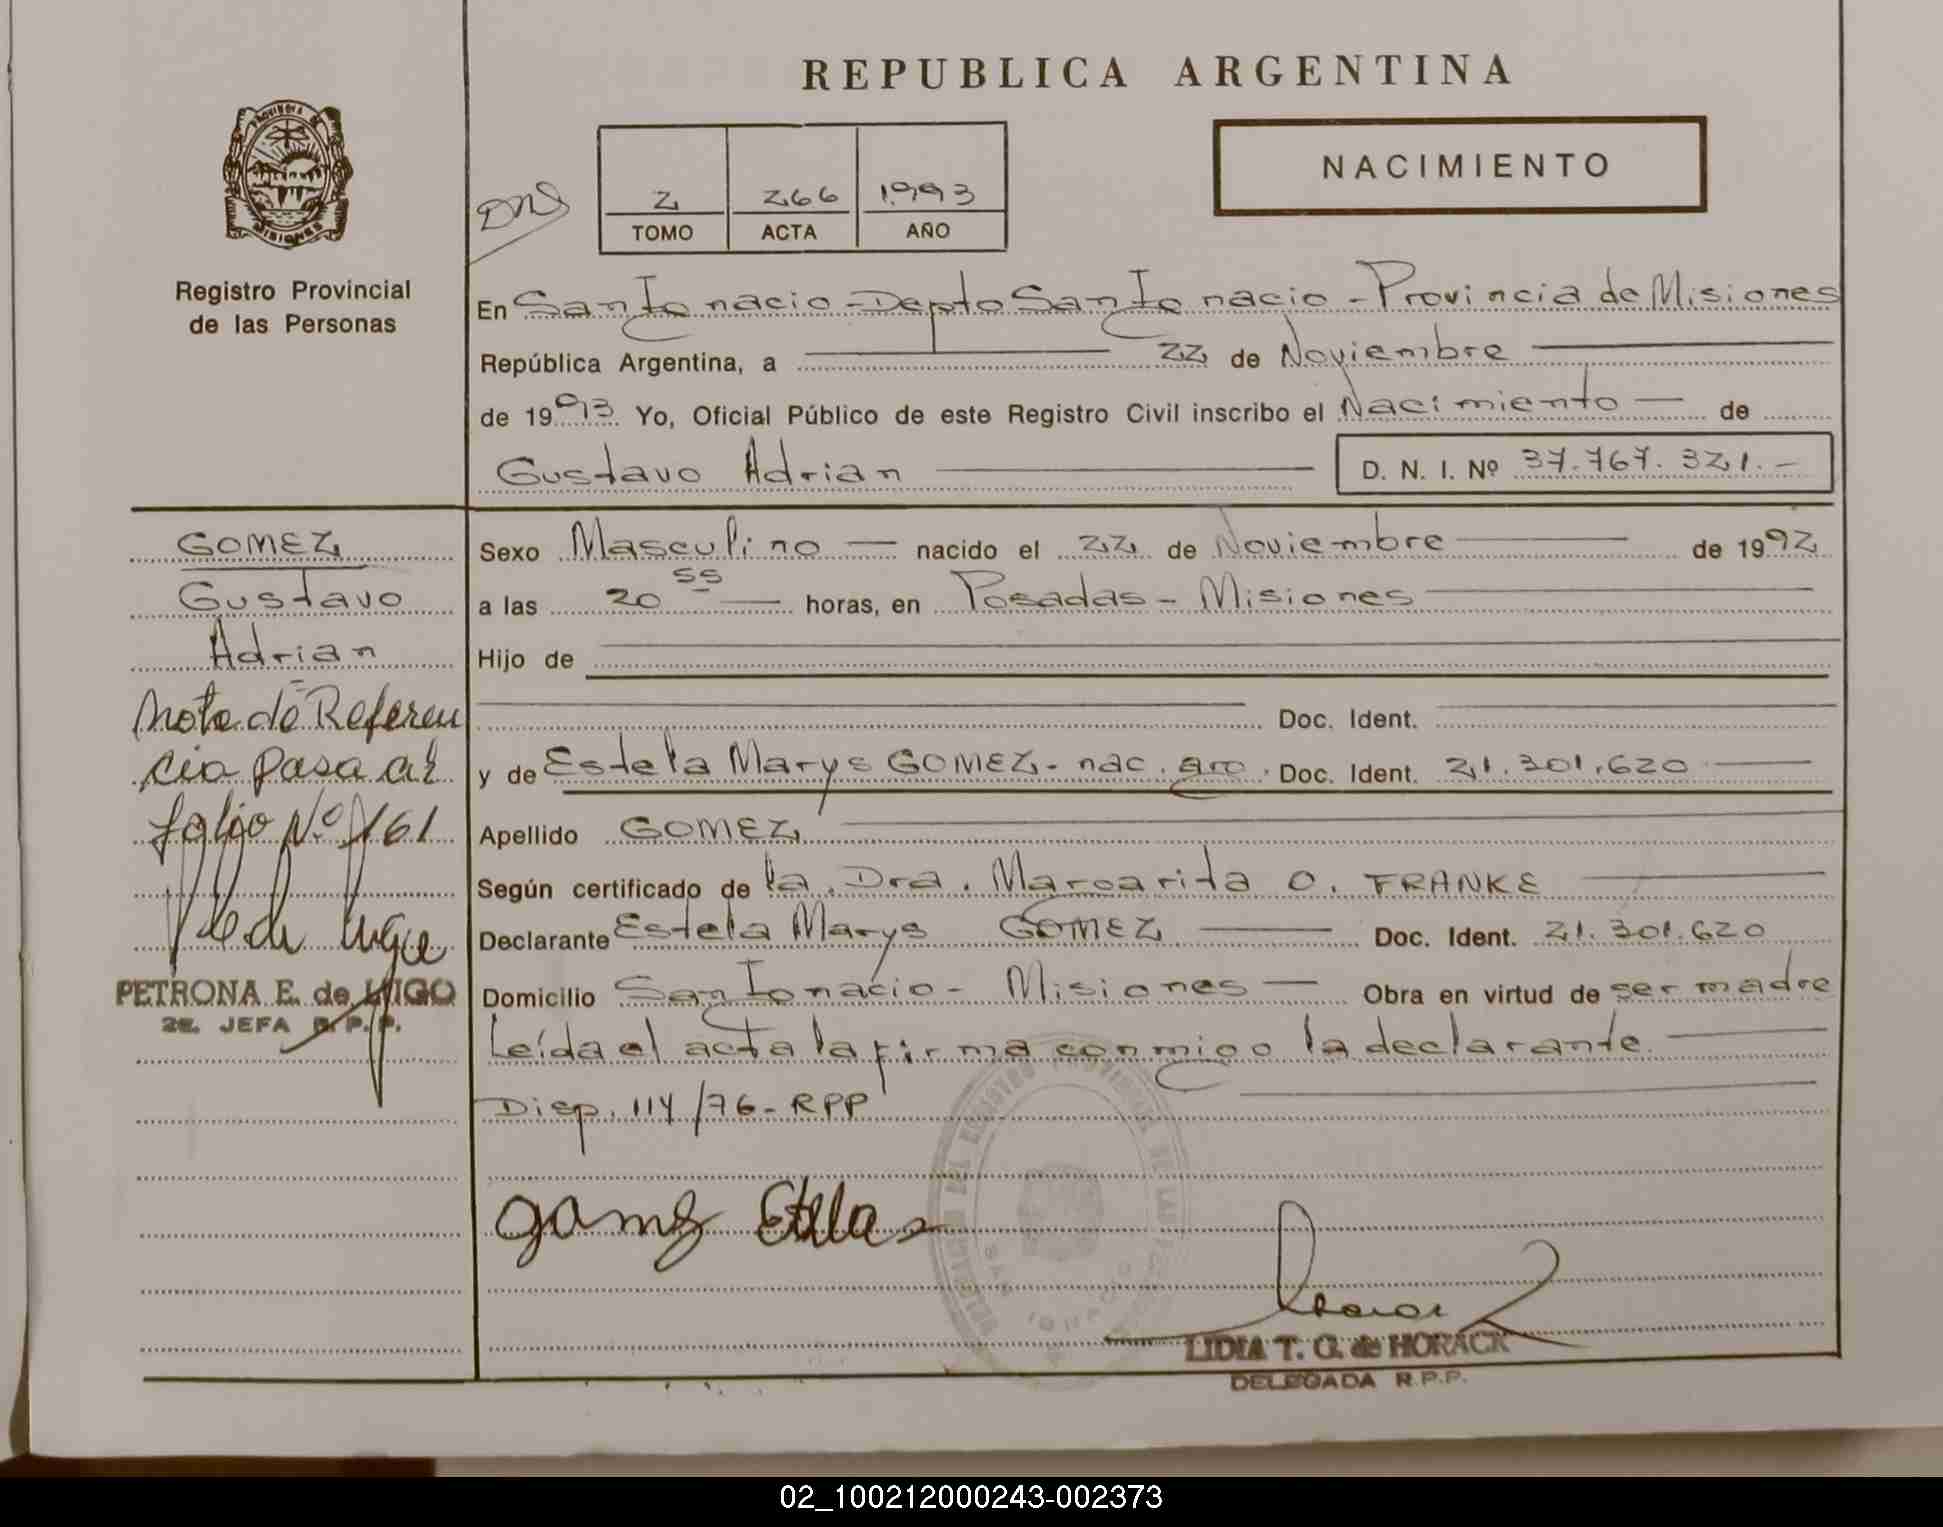 REPUBLICA ARGENTINA
PROVINCIA DE
MISIONES
Registro Provincial
de las Personas
NACIMIENTO
2 266 1993
TOMO ACTA AÑO
En San Ignacio - Depto San Ignacio - Provincia de Misiones
República Argentina, a 22 de Noviembre
de 1993 Yo, Oficial Público de este Registro Civil inscribo el Nacimiento - de
Gustavo Adrian D. N. I. Nº 37.767.321.-
GOMEZ
Gustavo
Adrian
Nota de Referen
cia pasa al
folio Nº 161
PETRONA E. de LUGO
2E. JEFA R. P. P.
Sexo Masculino - nacido el 22 de Noviembre de 1992
a las 20 55 horas, en Posadas - Misiones
Hijo de
Doc. Ident.
y de Estela Marys GOMEZ - nac. arg. Doc. Ident. 21.301.620
Apellido GOMEZ
Según certificado de la Dra. Margarita O. FRANKE
Declarante Estela Marys GOMEZ Doc. Ident. 21.301.620
Domicilio San Ignacio - Misiones - Obra en virtud de ser madre
Leída el acta la firma conmigo la declarante
Disp. 114/76 - RPP
LIDIA T. G. de HORACK
DELEGADA R.P.P.
02_100212000243-002373